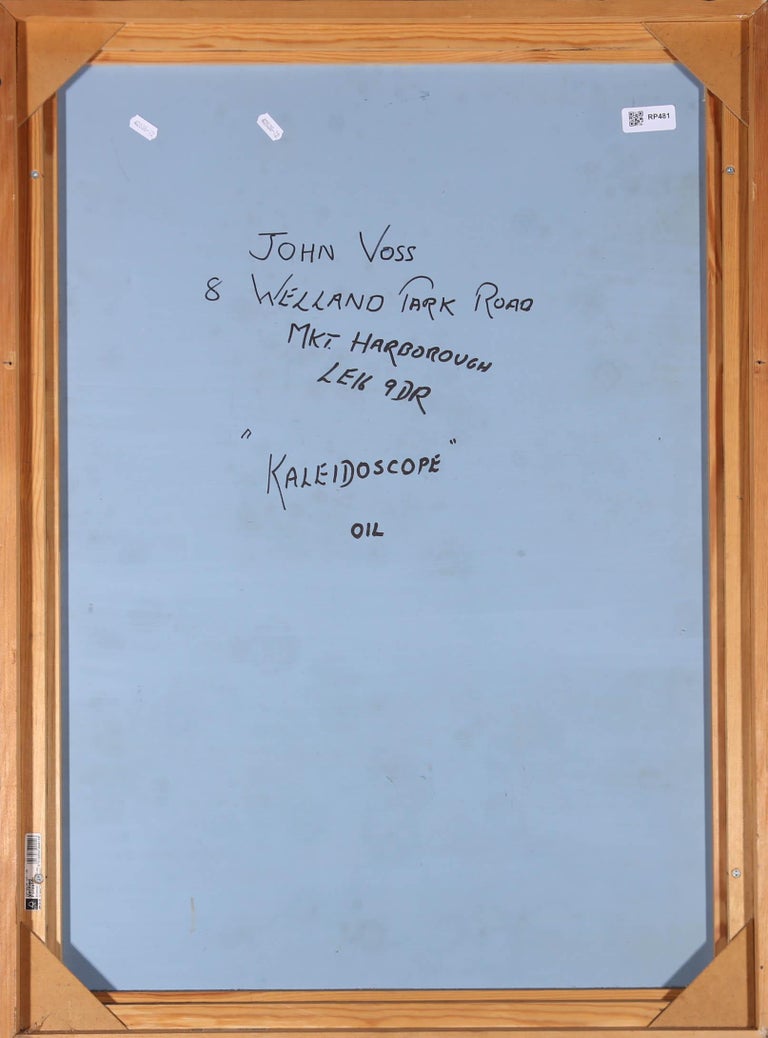 RP481
JOHN VOSS
8 WELLAND PARK ROAD
MKT. HARBOROUGH
LE16 9DR
"KALEIDOSCOPE"
OIL